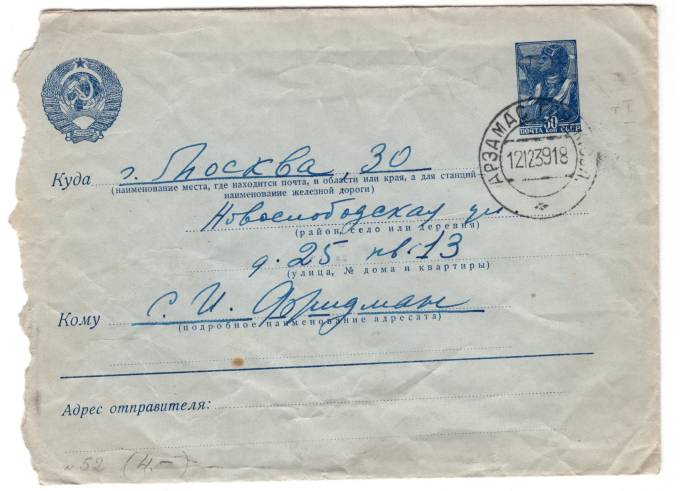 30
ПОЧТА КОП СССР
АРЗАМАС
12123918
Куда г. Москва, 30
(наименование места, где находится почта, и области или края, а для станций
наименование железной дороги)
Новослободская ул.
(район, село или деревня)
д. 25 кв. 13
(улица, № дома и квартиры)
Кому С. И. Фридман
(подробное наименование адресата)
Адрес отправителя:
№ 52 (4.–)